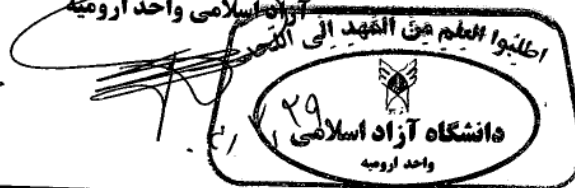 آزاد اسلامی واحد ارومیه
اطلبوا العلم من المهد الی اللحد
دانشگاه آزاد اسلامی
واحد ارومیه